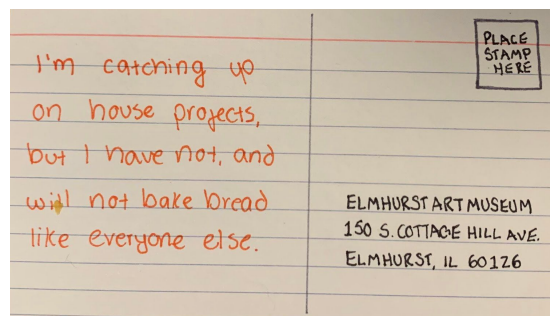 I'm catching up
on house projects,
but I have not, and
will not bake bread
like everyone else.
PLACE
STAMP
HERE
ELMHURST ART MUSEUM
150 S. COTTAGE HILL AVE.
ELMHURST, IL 60126